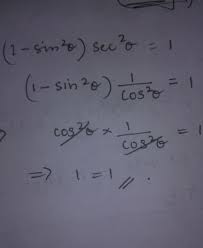 (1-sin²θ) sec²θ = 1
(1-sin²θ) 1/cos²θ = 1
cos²θ × 1/cos²θ = 1
⇒ 1 = 1 //.